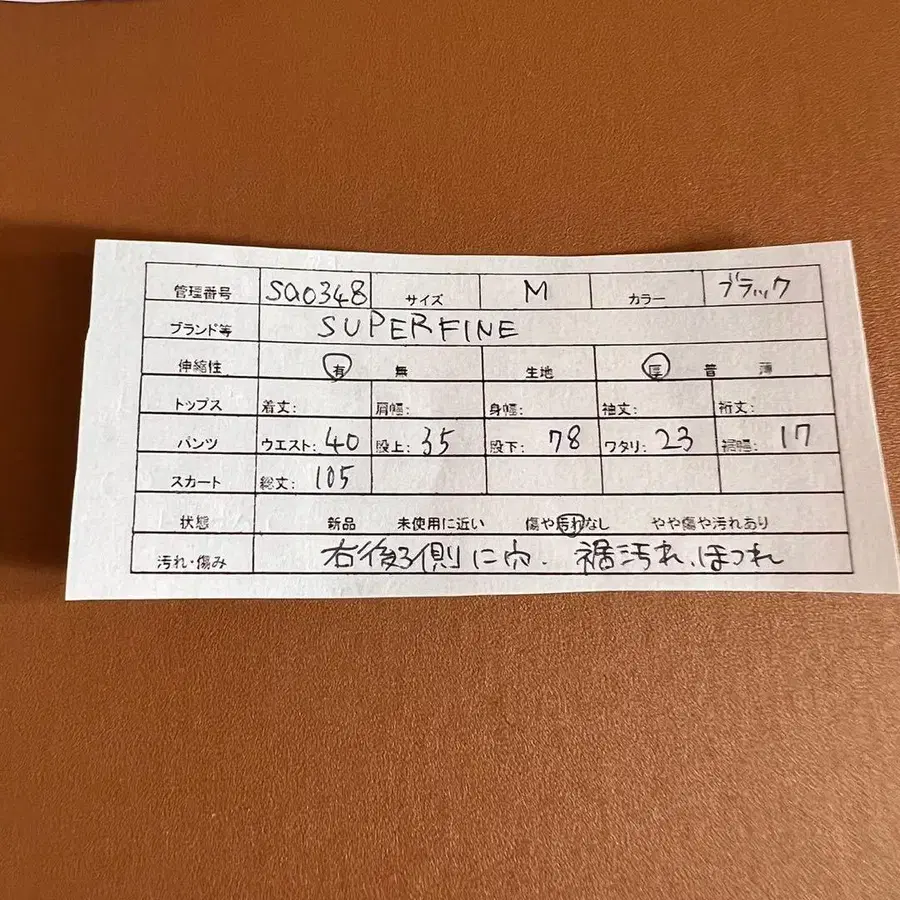 管理番号 sa0348 サイズ M カラー ブラック
ブランド等 SUPERFINE
伸縮性 有 無 生地 厚 普 薄
トップス 着丈: 肩幅: 身幅: 袖丈: 裄丈:
パンツ ウエスト: 40 股上: 35 股下: 78 ワタリ: 23 裾幅: 17
スカート 総丈: 105
状態 新品 未使用に近い 傷や汚れなし やや傷や汚れあり
汚れ・傷み 右後ろ側に穴. 裾汚れ、ほつれ